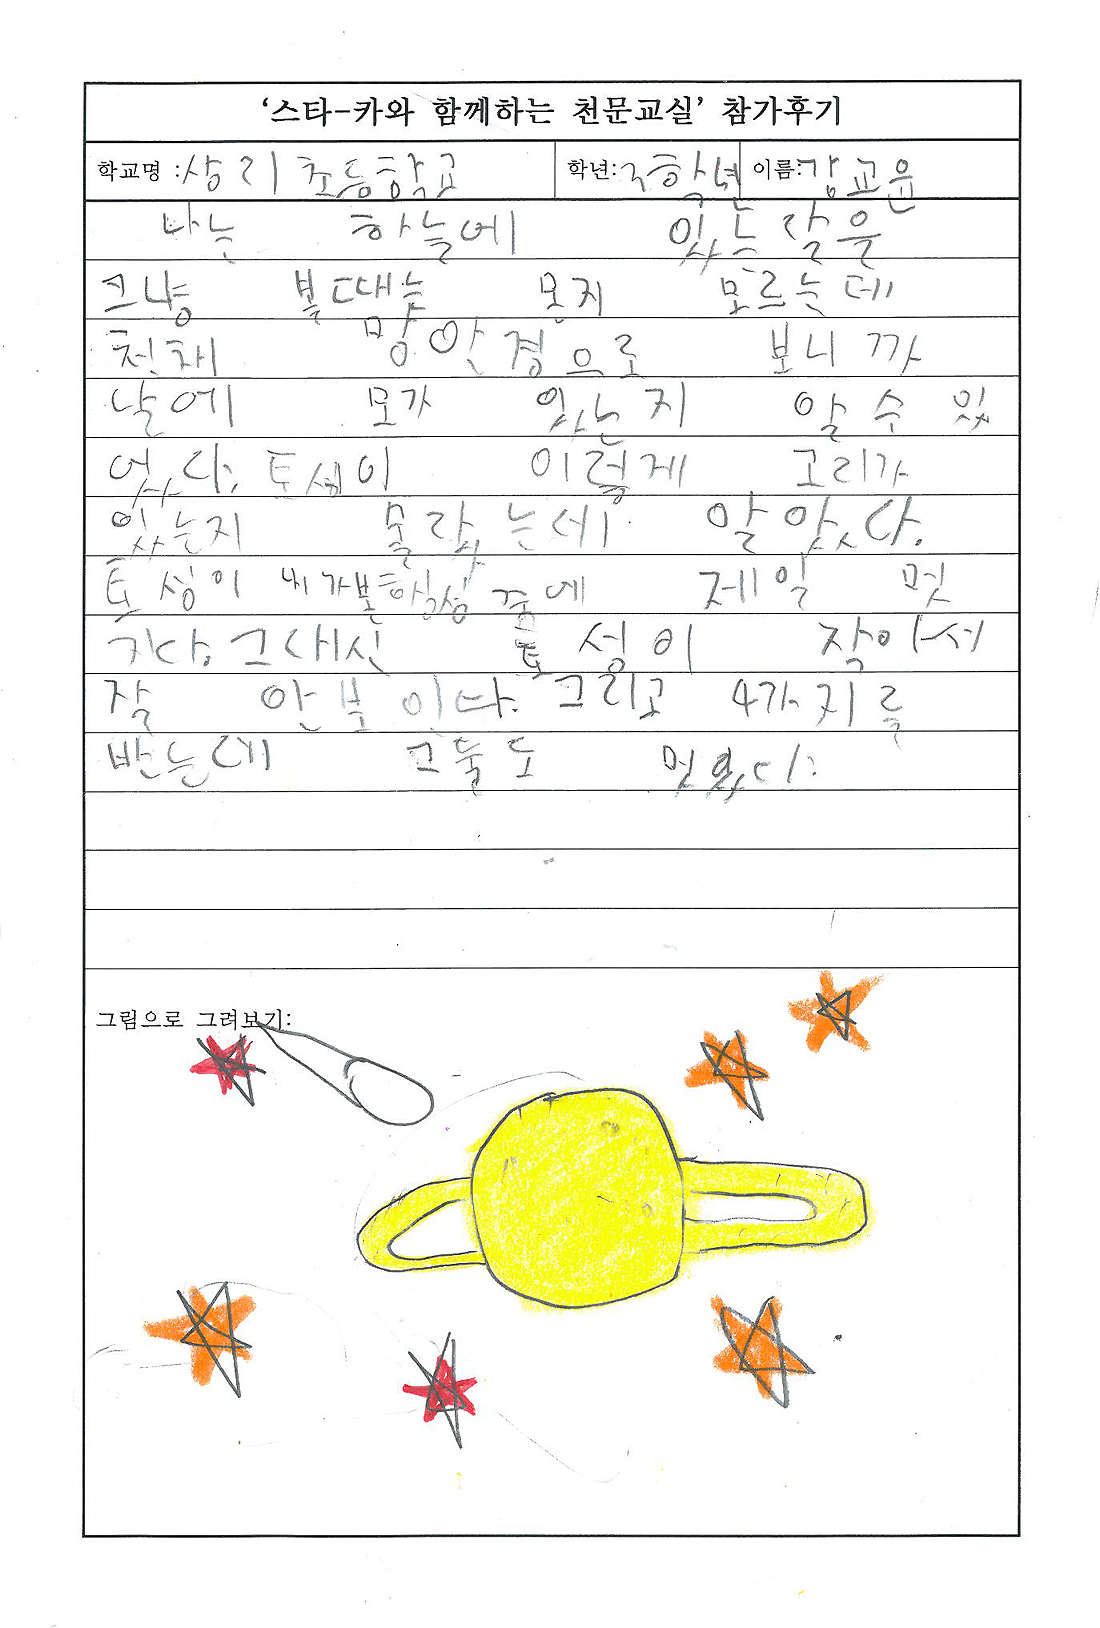 ‘스타-카와 함께하는 천문교실’ 참가후기
학교명 :상리초등학교 학년: 학년 이름:강교윤
나는 하늘에 있는 달을
그냥 볼때는 몬지 모르는데
천채 망안경으로 보니까
날에 모가 있는지 알 수 있
었다. 토성이 이렇게 고리가
있는지 몰랐는데 알았다.
토성이 내가본행성 중에 제일 멋
지다. 그대신 토성이 작아서
잘 안보인다. 그리고 4가지를
받는데 그둘도 멋있다.
그림으로 그려보기: